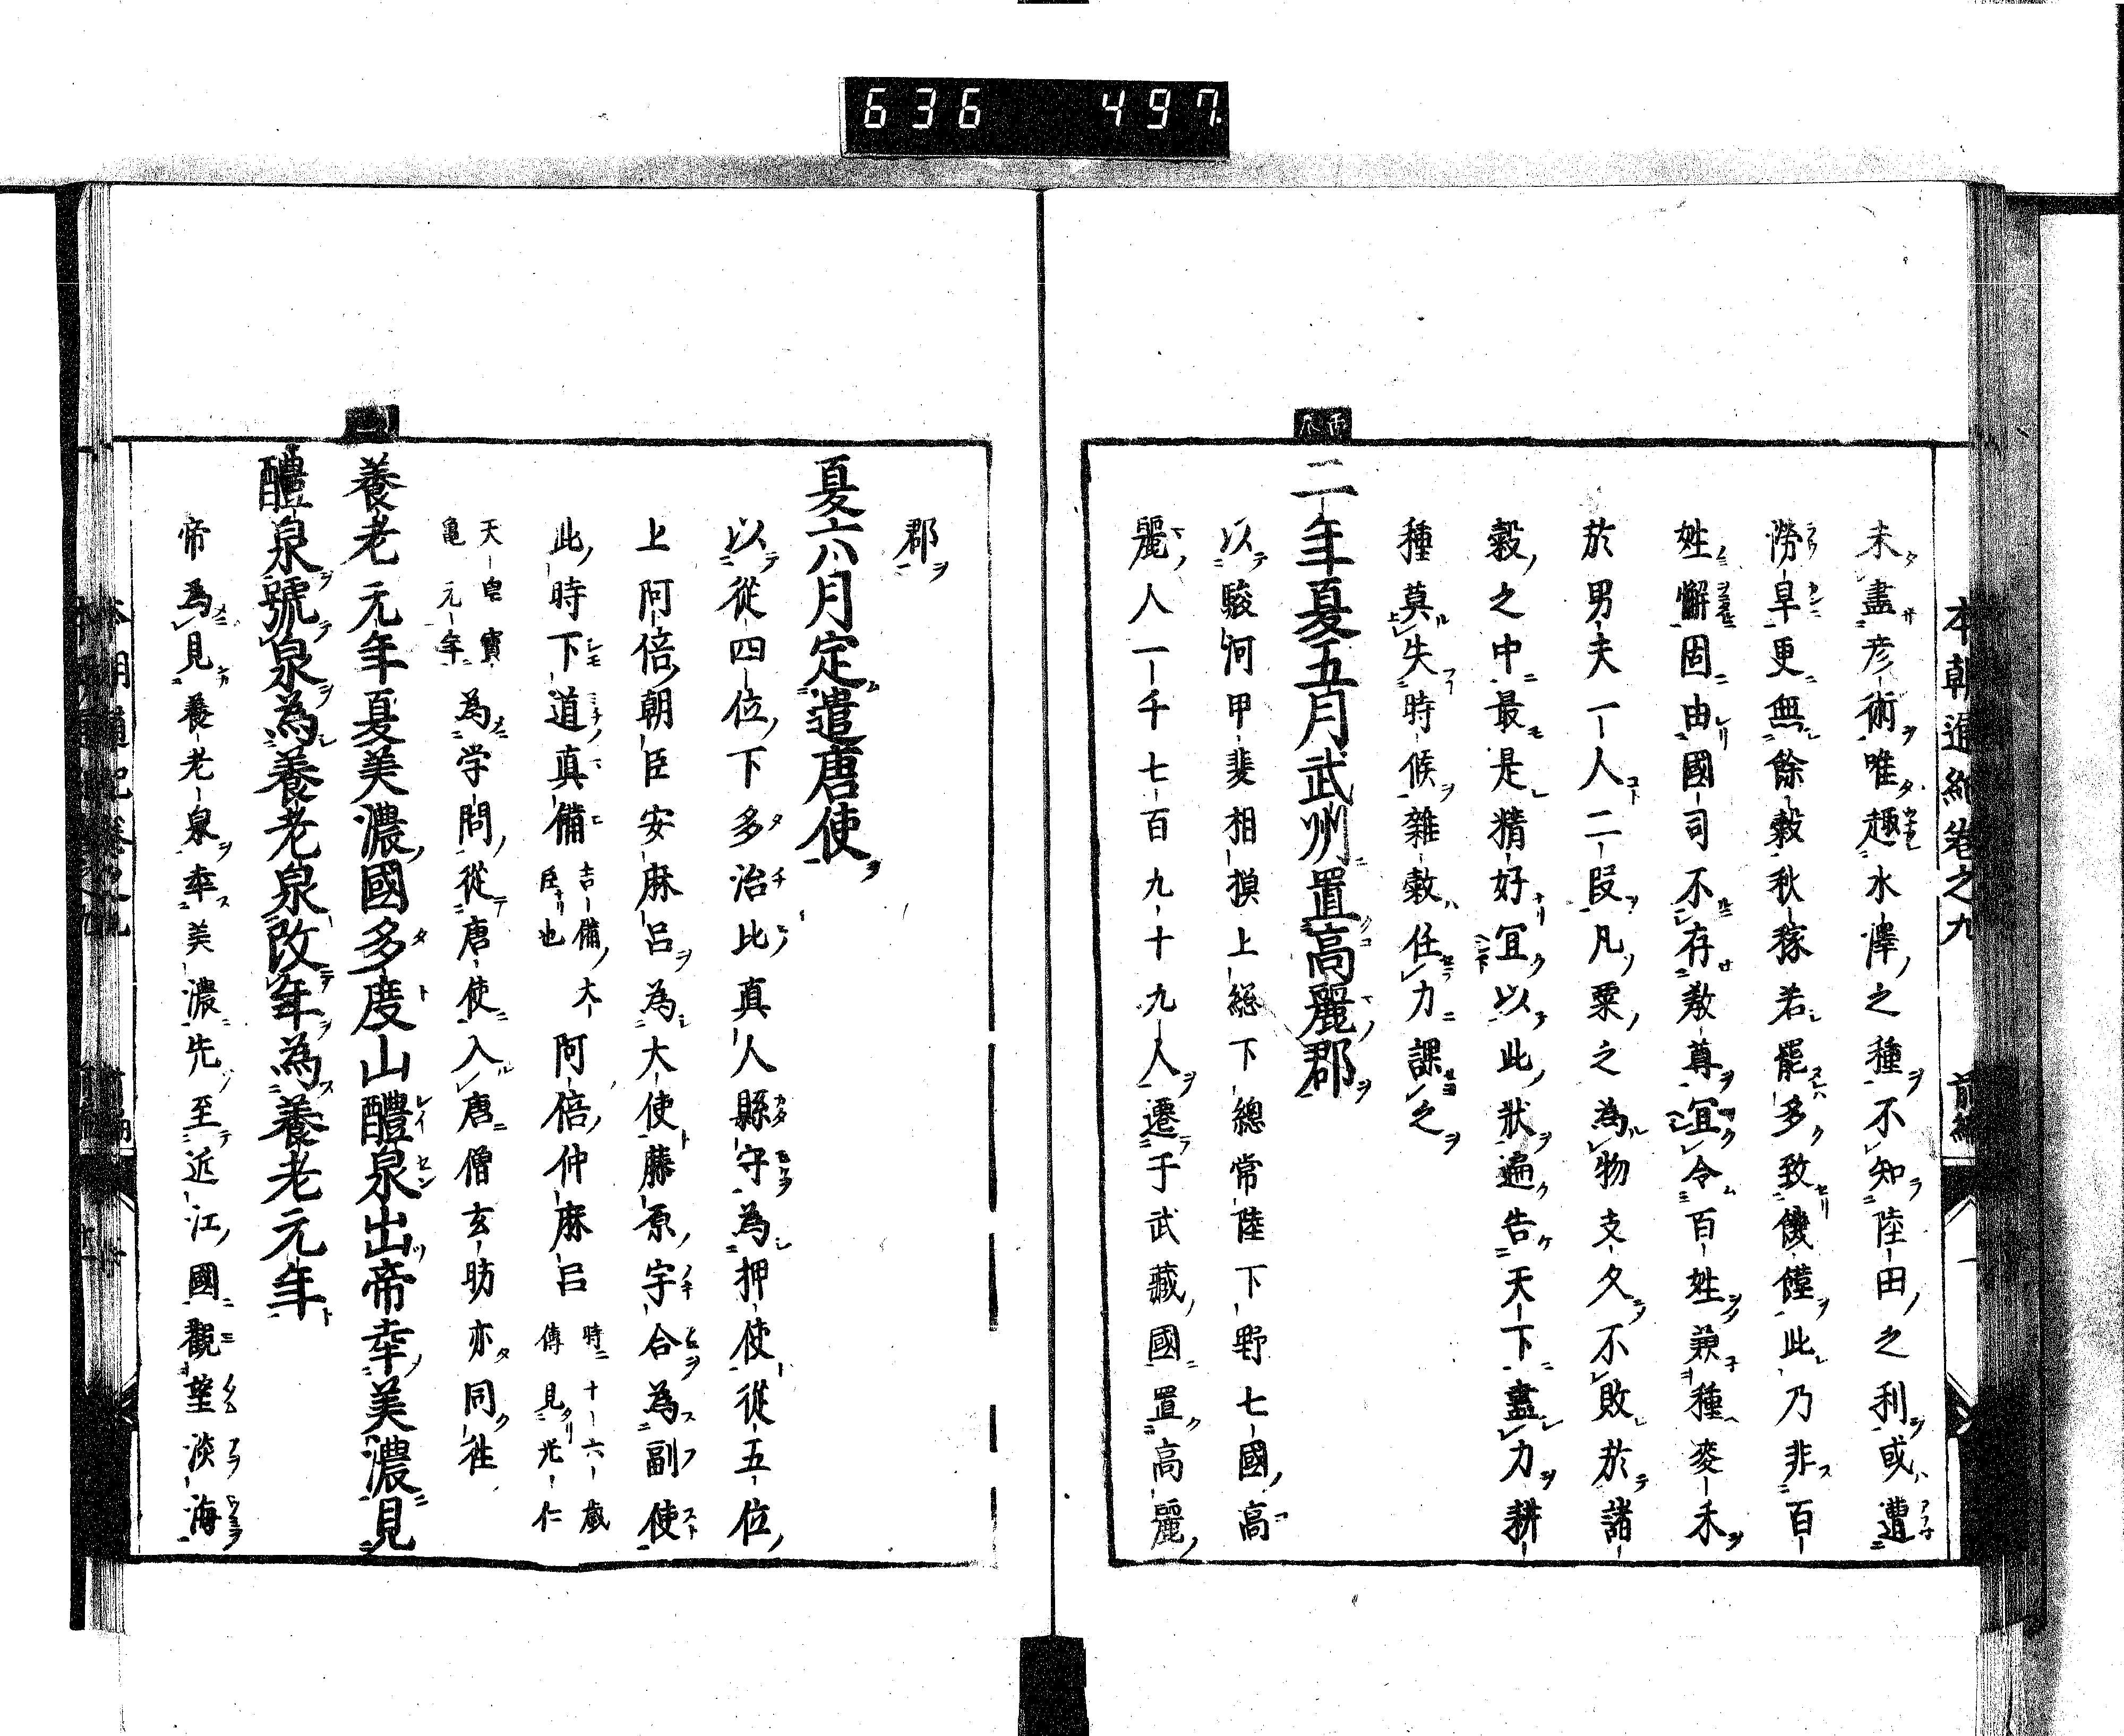 636 497
本朝通紀卷之九 前編
未盡彦術唯趣水澤之種不知陸田之利或遭
澇旱更無餘穀秋稼若罷多致饑饉此乃非百
姓懈固由國司不存教尊宜令百姓兼種麥禾
於男夫一人二段凡粟之為物支久不敗於諸
穀之中最是精好宜以此狀遍告天下盡力耕
種莫失時候雜穀任力課之
二年夏五月武州置高麗郡
以駿河甲斐相摸上総下總常陸下野七國高
麗人一千七百九十九人遷于武藏國置高麗
郡
夏六月定遣唐使
以從四位下多治比真人縣守為押使從五位
上阿倍朝臣安麻呂為大使藤原宇合為副使
此時下道真備吉備大臣也阿倍仲麻呂時十六歳傳見光仁
天皇寶亀元年為学問從唐使入唐僧玄昉亦同徃
養老元年夏美濃國多度山醴泉出帝幸美濃見
醴泉號泉為養老泉改年為養老元年
帝為見養老泉幸美濃先至近江國觀望淡海